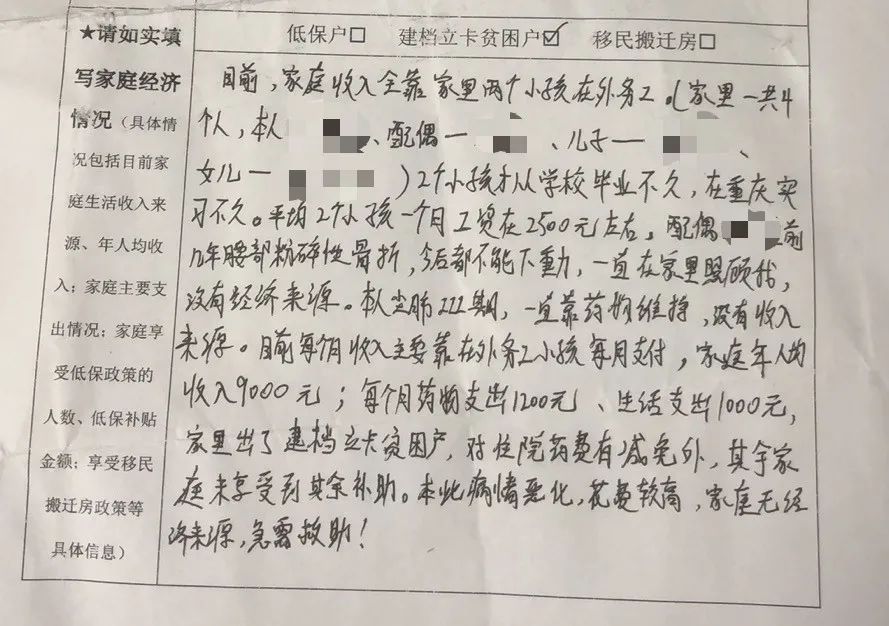 ★请如实填
写家庭经济
情况（具体情
况包括目前家
庭生活收入来
源、年人均收
入；家庭主要支
出情况；家庭享
受低保政策的
人数、低保补贴
金额；享受移民
搬迁房政策等
具体信息）
低保户□ 建档立卡贫困户☑ 移民搬迁房□
目前，家庭收入全靠家里两个小孩在外务工。（家里一共4
个人，本人、配偶一、儿子一、
女儿一）2个小孩才从学校毕业不久，在重庆实
习不久。平均2个小孩一个月工资在2500元左右，配偶前
几年腰部粉碎性骨折，今后都不能下重力，一直在家里照顾我，
没有经济来源。本人尘肺III期，一直靠药物维持，没有收入
来源。目前每个月收入主要靠在外务工小孩每月支付，家庭年人均
收入9000元；每个月药物支出1200元、生活支出1000元，
家里出了建档立卡贫困户，对住院药费有减免外，其余家
庭未享受到其余补助。本此病情恶化，花费较高，家庭无经
济来源，急需救助！